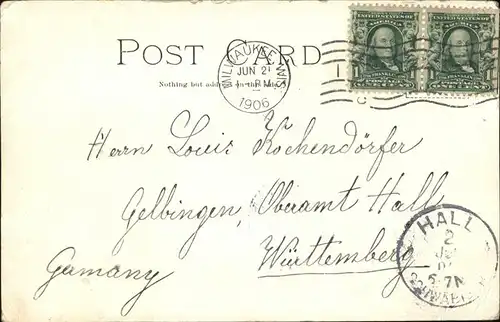 POST CARD
Nothing but address on this side.
MILWAUKEE, WIS.
JUN 21
PM
1906
UNITED STATES OF AMERICA
UNITED STATES OF AMERICA
FRANKLIN
FRANKLIN
1 1
Herrn Louis Kochendörfer
Gelbingen, Oberamt Hall
Württemberg
Germany
HALL
2
6-7N